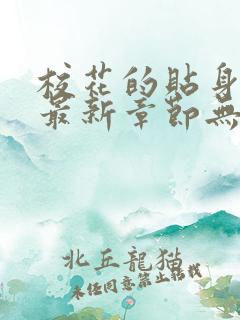 校花的貼身
最新章節無
北丘龍貓
未經同意禁止轉載